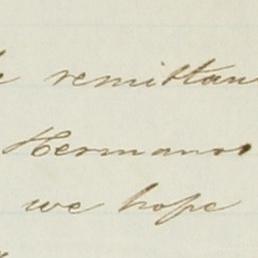 remittan
Hermanos
we hope